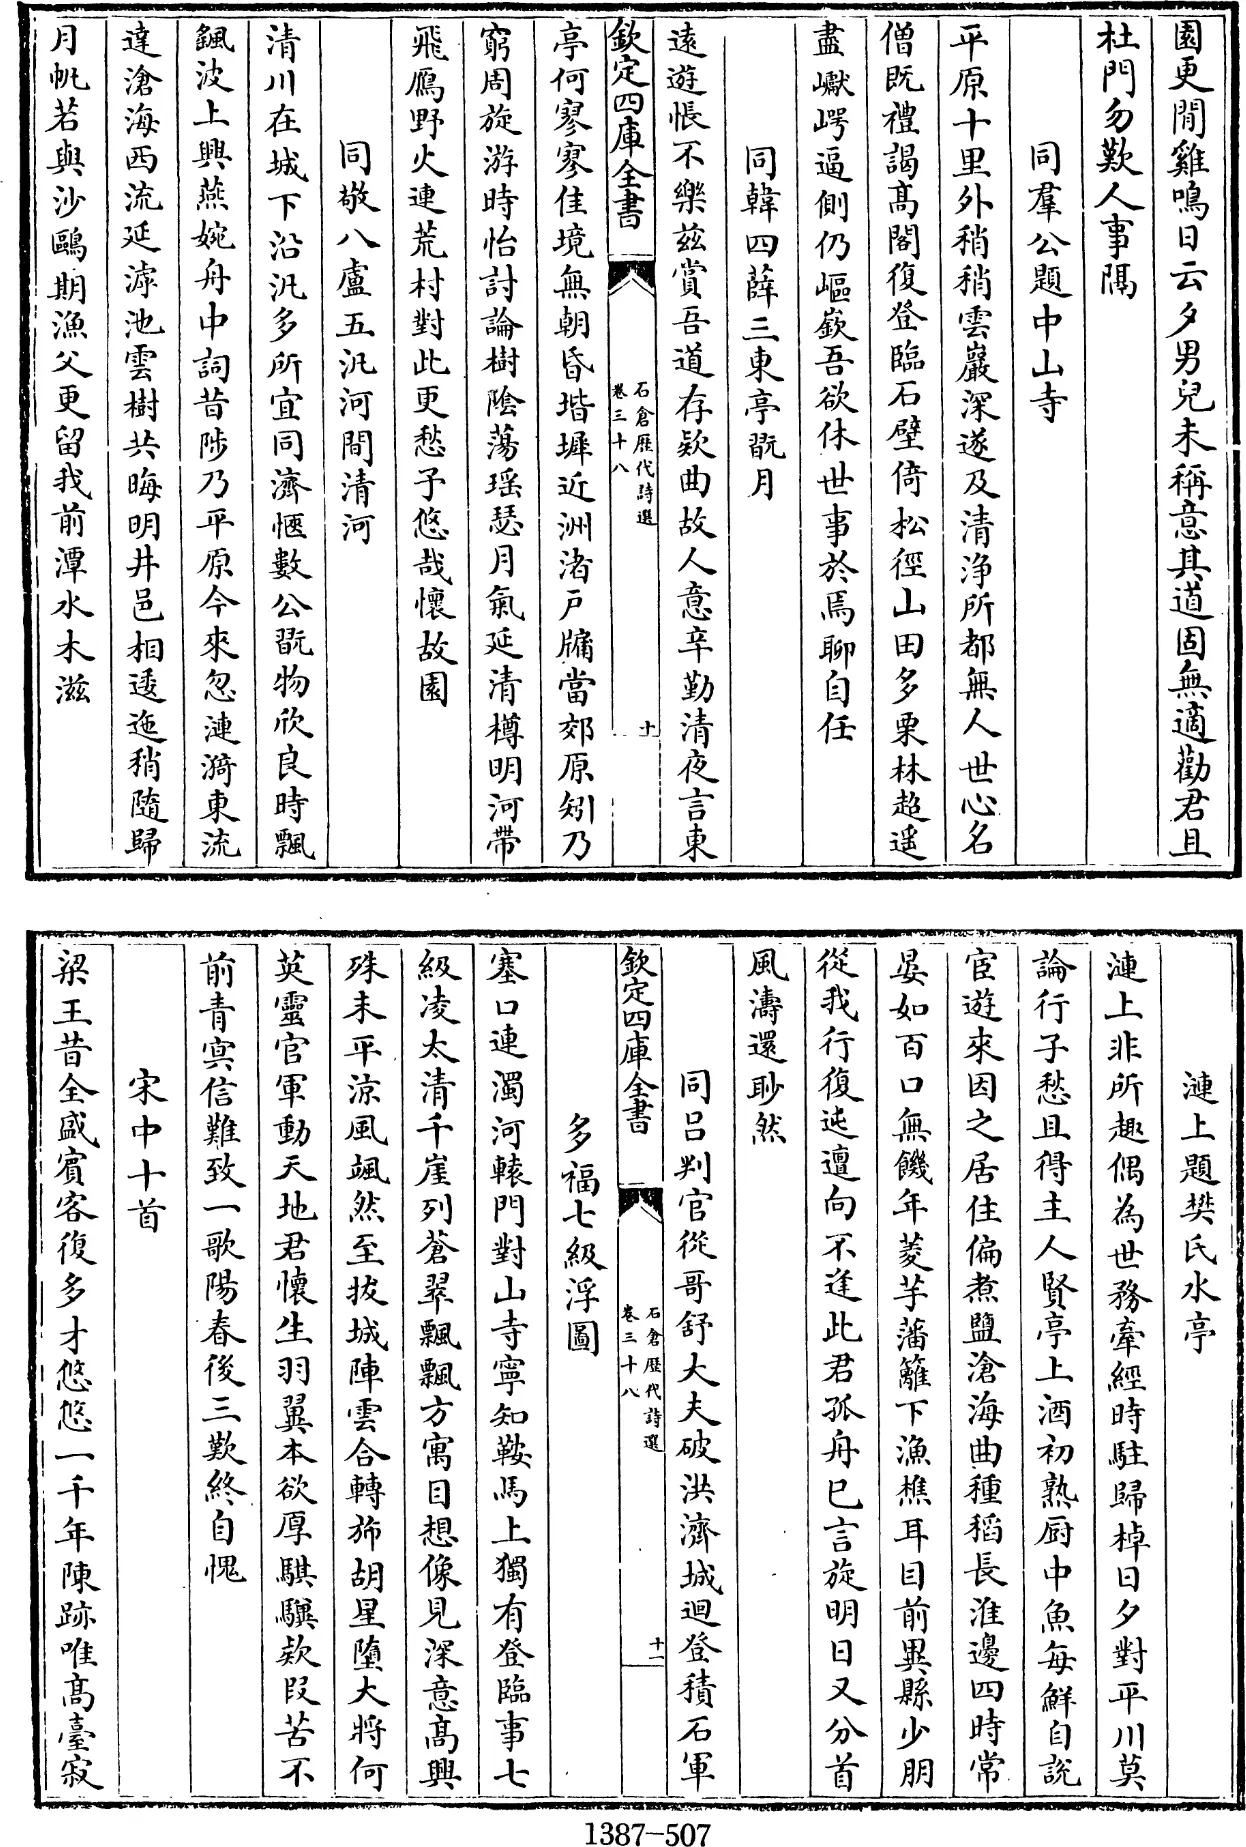 園更聞雞鳴日云夕男兒未稱意其道固無適勸君且
杜門勿歎人事隔
同羣公題中山寺
平原十里外稍稍雲巖深遂及清淨所都無人世心名
僧既禮謁高閣復登臨石壁倚松徑山田多栗林超遥
盡巘崿逼側仍嶇嶔吾欲休世事於焉聊自任
同韓四薛三東亭翫月
遠遊悵不樂兹賞吾道存欵曲故人意辛勤清夜言東
欽定四庫全書
石倉歷代詩選
卷三十八
十
亭何寥寥佳境無朝昏堦墀近洲渚戸牖當郊原矧乃
窮周旋游時怡討論樹陰蕩瑶瑟月氣延清樽明河帶
飛鴈野火連荒村對此更愁予悠哉懷故園
同敬八盧五汎河間清河
清川在城下沿汎多所宜同濟愜數公翫物欣良時飄
飖波上興燕婉舟中詞昔陟乃平原今來忽漣漪東流
達滄海西流延滹池雲樹共晦明井邑相逶迤稍隨歸
月帆若與沙鷗期漁父更留我前潭水木滋
漣上題樊氏水亭
漣上非所趣偶為世務牽經時駐歸棹日夕對平川莫
論行子愁且得主人賢亭上酒初熟厨中魚每鮮自説
宦遊來因之居住偏煮鹽滄海曲種稻長淮邊四時常
晏如百口無饑年菱芋藩籬下漁樵耳目前異縣少朋
從我行復迍邅向不逢此君孤舟已言旋明日又分首
風濤還眇然
同吕判官從哥舒大夫破洪濟城迴登積石軍
欽定四庫全書
石倉歷代詩選
卷三十八
十一
多福七級浮圖
塞口連濁河轅門對山寺寧知鞍馬上獨有登臨事七
級凌太清千崖列蒼翠飄飄方寓目想像見深意髙興
殊未平涼風颯然至拔城陣雲合轉斾胡星墮大將何
英靈官軍動天地君懷生羽翼本欲厚騏驥欵段苦不
前青冥信難致一歌陽春後三歎終自愧
宋中十首
梁王昔全盛賓客復多才悠悠一千年陳跡唯髙臺寂
1387-507